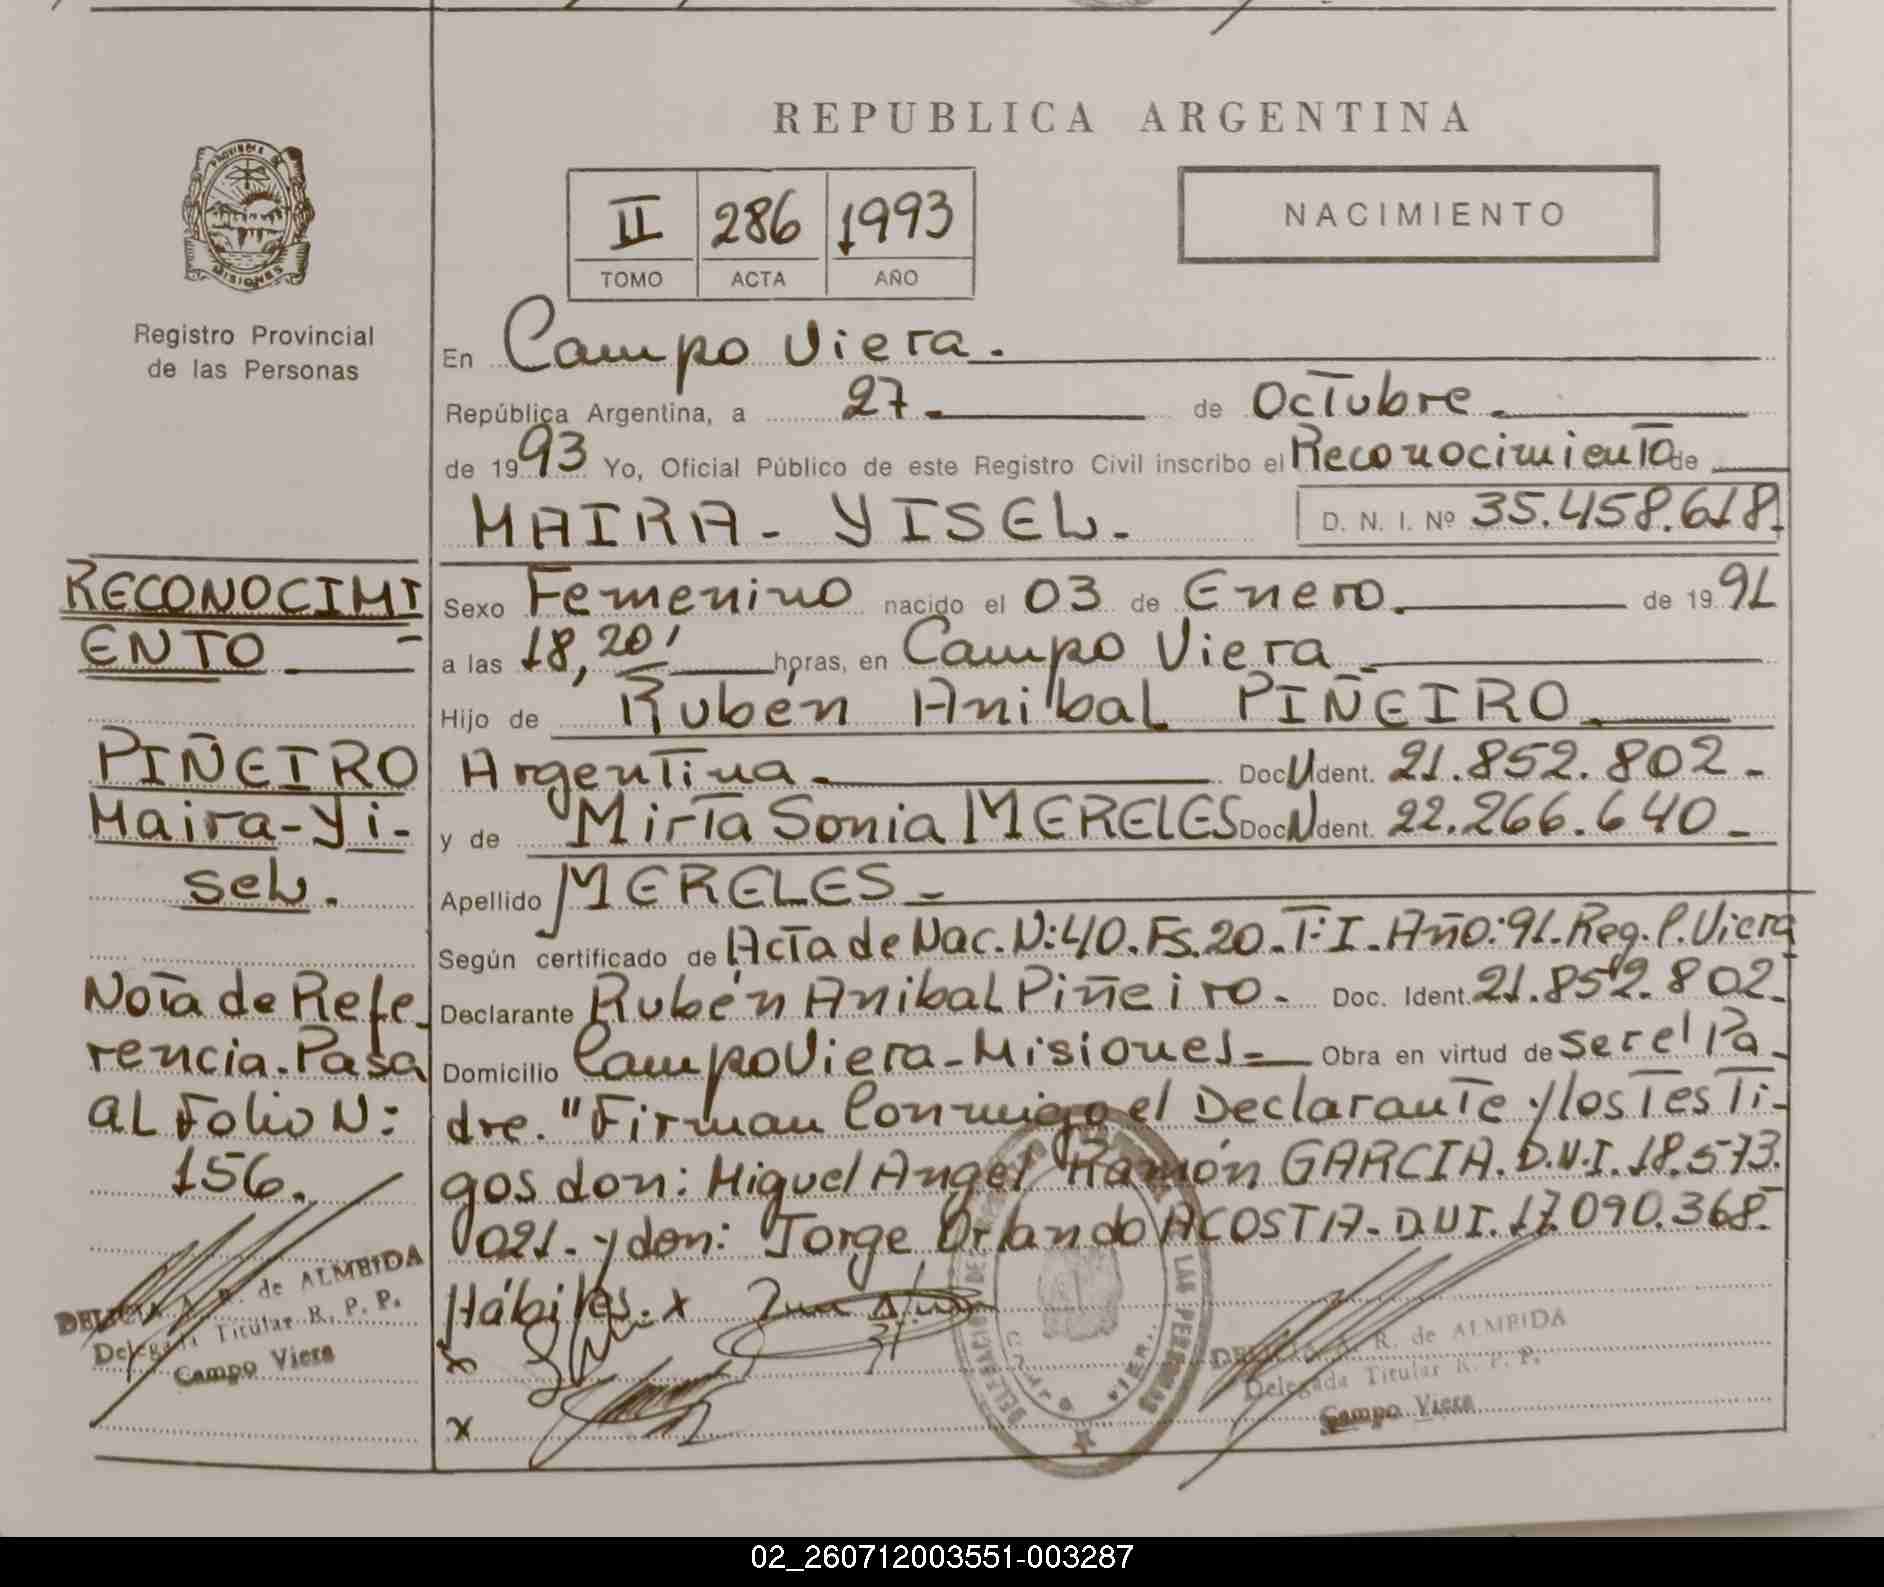 REPUBLICA ARGENTINA
II 286 1993
TOMO ACTA AÑO
NACIMIENTO
PROVINCIA DE
MISIONES
Registro Provincial
de las Personas
En Campo Viera.
República Argentina, a 27 de Octubre
de 1993 Yo, Oficial Público de este Registro Civil inscribo el Reconocimiento de
MAIRA - YISEL - D. N. I. Nº 35.458.618.
Sexo Femenino nacido el 03 de Enero. de 1991
a las 18,20' horas, en Campo Viera
Hijo de Rubén Anibal PIÑEIRO
Argentina Doc. Ident. 21.852.802 -
y de Mirta Sonia MERELES Doc. Ident. 22.266.640 -
Apellido MERELES -
Según certificado de Acta de Nac. N: 40. Fs. 20. T: I. Año: 91. Reg. C. Viera
Declarante Rubén Anibal Piñeiro. Doc. Ident. 21.852.802.
Domicilio Campo Viera - Misiones Obra en virtud de ser el Pa-
dre. "Firman Conmigo el Declarante y los Testi-
gos don: Miguel Angel Ramón GARCIA. D.N.I. 18.573.
021. y don: Jorge Orlando ACOSTA - D.N.I. 17.090.368.
Hábiles. x
x
x
RECONOCIMI
ENTO -
PIÑEIRO
Maira - Yi-
sel.
Nota de Refe-
rencia. Pasa
al Folio N:
156.
DELICIA A. R. de ALMEIDA
Delegada Titular R. P. P.
Campo Viera
DELICIA A. R. de ALMEIDA
Delegada Titular R. P. P.
Campo Viera
02_260712003551-003287